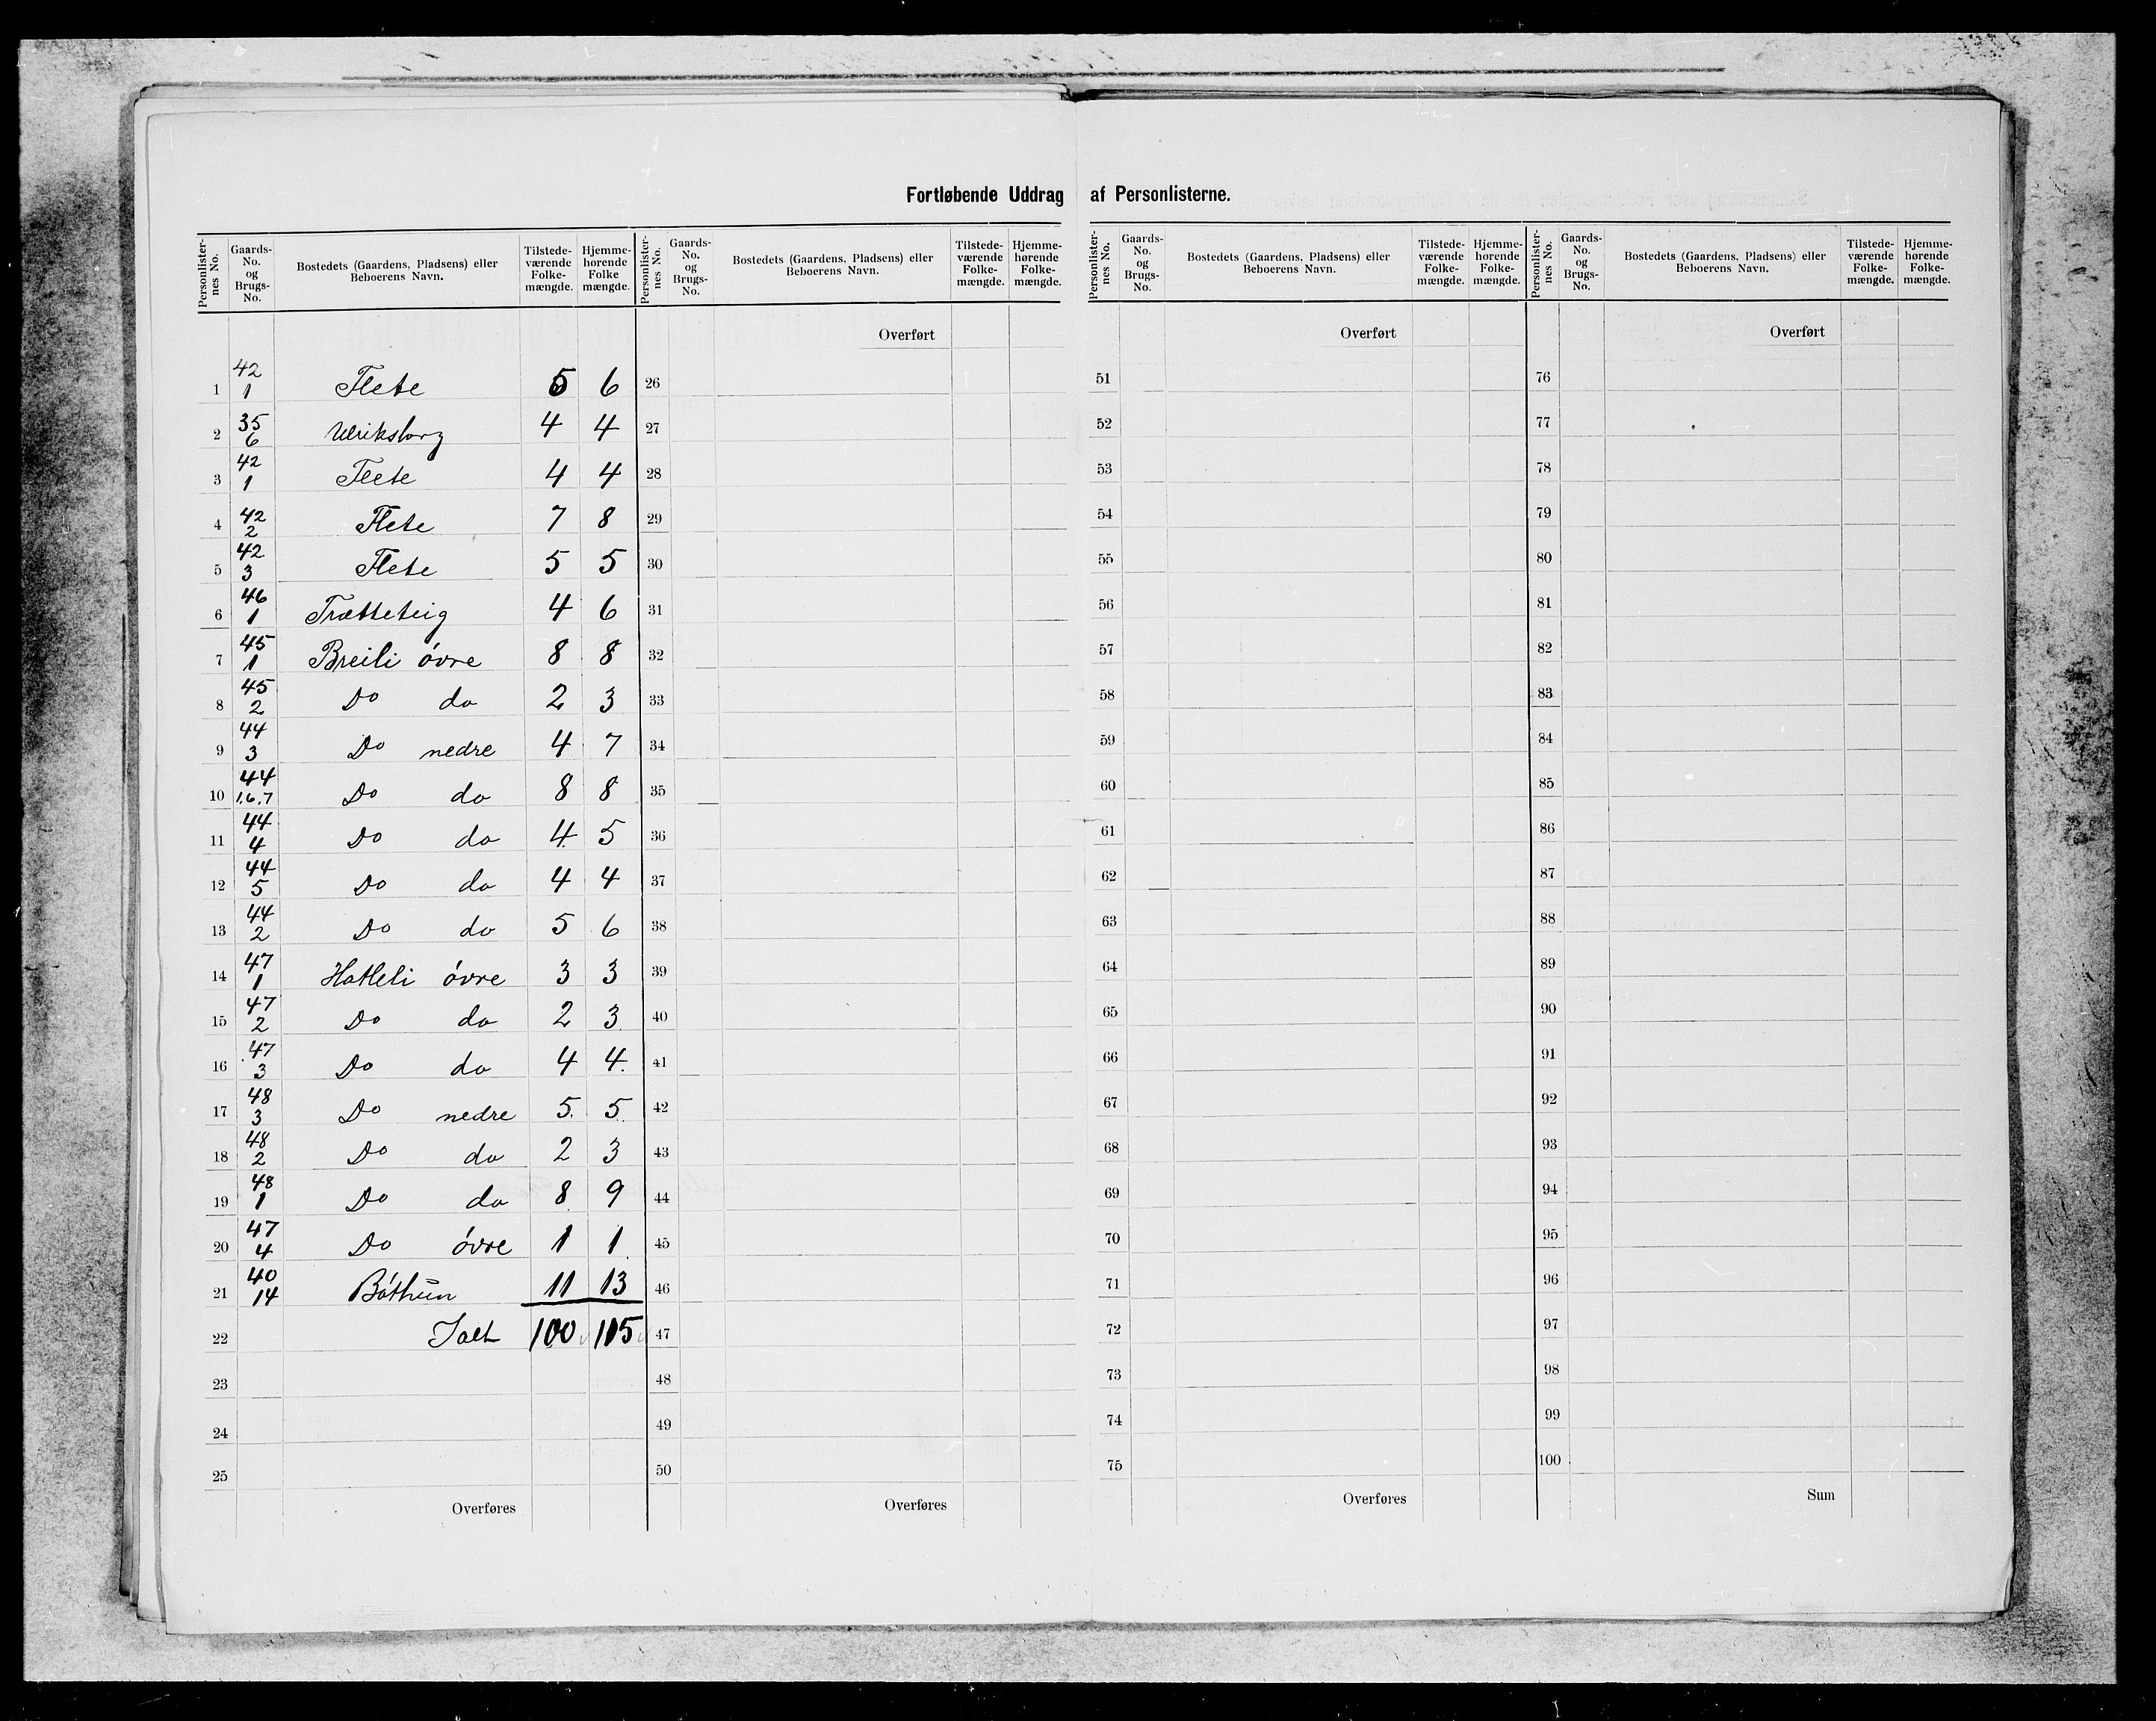 Fortløbende Uddrag af Personlisterne.
Personlister-nes No. | Gaards-No. og Brugs-No. | Bostedets (Gaardens, Pladsens) eller Beboerens Navn. | Tilstede-værende Folke-mængde. | Hjemme-hørende Folke mængde.
1 | 42 1 | Flete | 5 | 6
2 | 35 6 | Ulriksborg | 4 | 4
3 | 42 1 | Flete | 4 | 4
4 | 42 2 | Flete | 7 | 8
5 | 42 3 | Flete | 5 | 5
6 | 46 1 | Trætteteig | 4 | 6
7 | 45 1 | Breili óvre | 8 | 8
8 | 45 2 | Do do | 2 | 3
9 | 44 3 | Do nedre | 4 | 7
10 | 44 1.6.7 | Do do | 8 | 8
11 | 44 4 | Do do | 4 | 5
12 | 44 5 | Do do | 4 | 4
13 | 44 2 | Do do | 5 | 6
14 | 47 1 | Hatleli óvre | 3 | 3
15 | 47 2 | Do do | 2 | 3
16 | 47 3 | Do do | 4 | 4
17 | 48 3 | Do nedre | 5 | 5
18 | 48 2 | Do do | 2 | 3
19 | 48 1 | Do do | 8 | 9
20 | 47 4 | Do óvre | 1 | 1
21 | 40 14 | Bóthun | 11 | 13
22 | Ialt | 100 | 115
23
24
25
Overføres
Personlister-nes No. | Gaards-No. og Brugs-No. | Bostedets (Gaardens, Pladsens) eller Beboerens Navn. | Tilstede-værende Folke-mængde. | Hjemme-hørende Folke-mængde.
Overført
26
27
28
29
30
31
32
33
34
35
36
37
38
39
40
41
42
43
44
45
46
47
48
49
50
Overføres
Personlister-nes No. | Gaards-No. og Brugs-No. | Bostedets (Gaardens, Pladsens) eller Beboerens Navn. | Tilstede-værende Folke-mængde. | Hjemme-hørende Folke-mængde.
Overført
51
52
53
54
55
56
57
58
59
60
61
62
63
64
65
66
67
68
69
70
71
72
73
74
75
Overføres
Personlister-nes No. | Gaards-No. og Brugs-No. | Bostedets (Gaardens, Pladsens) eller Beboerens Navn. | Tilstede-værende Folke-mængde. | Hjemme-hørende Folke-mængde.
Overført
76
77
78
79
80
81
82
83
84
85
86
87
88
89
90
91
92
93
94
95
96
97
98
99
100
Sum